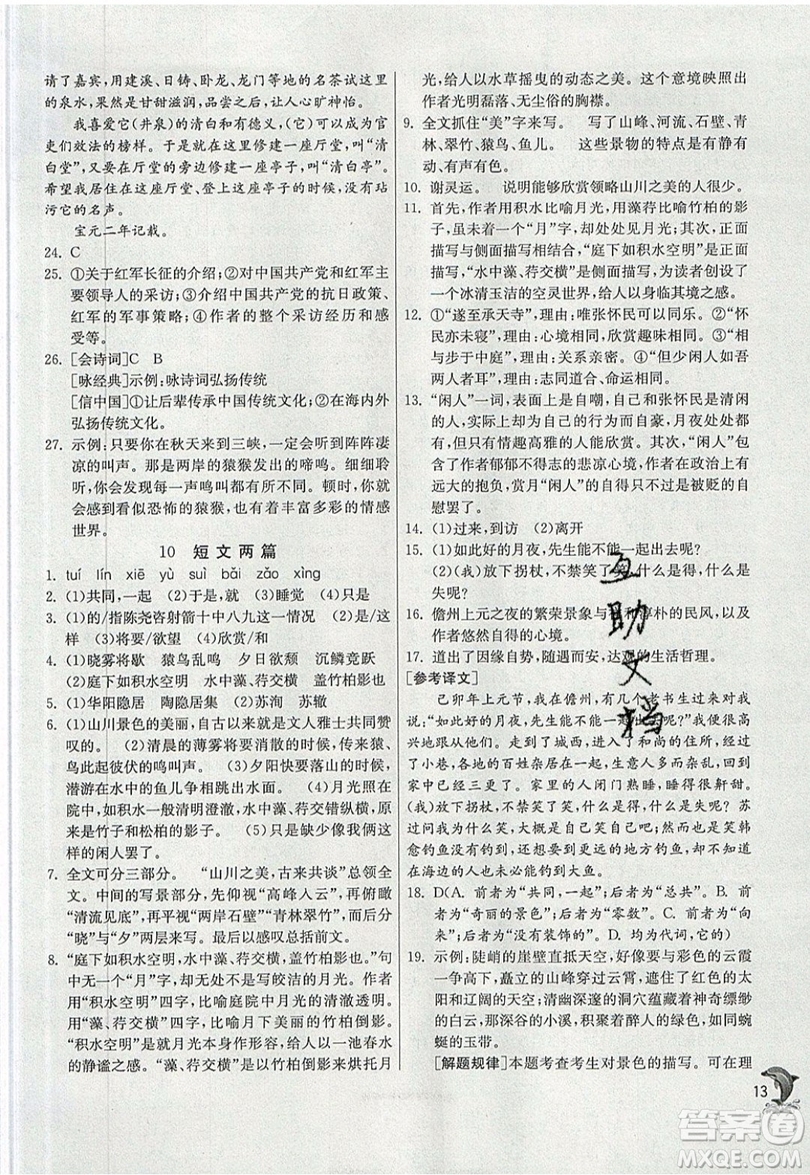 请了嘉宾，用建溪、日铸、卧龙、龙门等地的名茶试这里
的泉水，果然是甘甜滋润，品尝之后，让人心旷神怡。
我喜爱它(井泉)的清白和有德义，(它)可以成为官
吏们效法的榜样。于是就在这里修建一座厅堂，叫“清
白堂”，又要在厅堂的旁边修建一座亭子，叫“清白亭”。
希望我居住在这座厅堂、登上这座亭子的时候，没有玷
污它的名声。
宝元二年记载。
24. C
25. ①关于红军长征的介绍；②对中国共产党和红军主
要领导人的采访；③中国共产党的抗日政策、
红军的军事策略；④作者的整个采访经历和感
受等。
26. [会诗词]C B
[咏经典]示例：咏诗词弘扬传统
[信中国]①让后辈传承中国传统；②在海内外
弘扬传统文化。
27. 示例：只要你在秋天来到三峡，一定会听到阵阵凄
凉的叫声。那是两岸的猿猴发出的啼鸣。细细聆
听，你会感到每一声鸣叫都有所不同。顿时，你就
会感到看似恐怖的猿猴，也有着丰富多彩的情感
世界。
10 短文两篇
1. tuí lín xiē yù suì bǎi zǎo xìng
2. (1)共同，一起 (2)于是，就 (3)睡觉 (4)只是
3. (1)的/指陈尧咨射箭十中八九这一情况 (2)或/
这样 (3)将要/欲望 (4)欣赏/和
4. (1)晓雾将歇 猿鸟乱鸣 夕日欲颓 沉鳞竞跃
(2)庭下如积水空明 水中藻、荇交横 盖竹柏影也
5. (1)华阳隐居 陶隐居集 (2)苏洵 苏辙
6. (1)山川景色的美丽，自古以来就是文人雅士共同赞
叹的。 (2)清晨的薄雾将要消散的时候，传来猿、
鸟此起彼伏的鸣叫声。 (3)夕阳快要落山的时候，
潜游在水中的鱼儿争相跳出水面。 (4)月光照在庭
院中，如积水一般清明澄澈，水中藻、荇交错纵横，
原来是竹子和松柏的影子。 (5)只是缺少像我俩这样
的闲人罢了。
7. 全文可分三部分。 “山川之美，古来共谈”总领全
文。中间的写景部分，先仰视“高峰入云”，再俯视
“清流见底”，再平视“两岸石壁”“青林翠竹”，而后分
“晓”与“夕”两层描写。最后以感叹总括前文。
8. “庭下如积水空明，水中藻、荇交横，盖竹柏影也。”句
中无一个月字，作者却无处不写皎洁的月光。作者
用“积水空明”四字，比喻庭中月光的清澈透明。
用“藻、荇交横”四字，比喻月下美丽的竹柏倒影。
“积水空明”以月光本身作形容，给人以一池春水
的静谧之感。“藻、荇交横”是以竹柏倒影来烘托月
光，给人以水草摇曳的动态之美。这个意境映照出
作者光明磊落、无尘俗的胸襟。
9. 全文抓住“美”字来写。 写了山峰、河流、石壁、青
林、翠竹、猿鸟、鱼儿。 这些景物的特点是有静有
动、有声有色。
10. 谢灵运。 说明能够欣赏领略山川之美的人很少。
11. 首先，作者用积水比喻月光，用藻荇比喻竹柏的影
子，却处处显示出月光之美；其次，作者运用了正面
描写与侧面描写相结合的方法，“庭下如积水空明”
是正面描写，“水中藻、荇交横”是侧面描写，为读者创设了
一个冰清玉洁的空灵世界，给人以身临其境之感。
12. ①“遂至承天寺”，理由：唯张怀民可以同乐。②“怀
民亦未寝”，理由：心境相同，欣赏趣味相同。③“相
与步于中庭”，理由：亲密无间。④“但少闲人如吾
两人者耳”，理由：志同道合、命运相同。
13. “闲人”一词，表面上是自嘲，自己和张怀民是清闲
的人，实际上却为自己的行为而自豪，月夜处处都
有，但只有情趣高雅的人能欣赏。“闲人”包含了
作者郁郁不得志的悲凉心境，作者在政治上有
远大的抱负，赏月“闲人”的自得只不过是被贬的自
我慰罢了。
14. (1)过来，到访 (2)离开
15. (1)如此好的月夜，先生能不能一起出去？
(2)(我)放下拐杖，不禁笑了笑，什么是得，什么是
失呢？
16. 儋州上元之夜的繁荣景象与平和淳朴的民风，以及
作者悠然自得的心境。
17. 道出了因缘自势，随遇而安、达观的生活哲理。
[参考译文]
己卯年上元节，我在儋州，有几个老书生过来，
说：“如此好的月夜，先生能不能一起出去？”我很高
兴地跟从他们。走到了城西，进入和尚的住所，经过
了小巷，各地的百姓杂居在一起，生活井然有序。回到
家中已三更了。家里的人闭门熟睡，睡得很鼾甜。
(我)放下拐杖，不禁笑了笑，什么是得，什么是失呢？苏
过问我为什么笑，大概是自己笑自己吧。然而也笑韩
愈钓鱼没有钓到，还想要去更远的地方钓鱼，却不知道在
海边的人也未必能钓到大鱼。
18. D(A. 前者为“共同，一起”；后者为“总共”。B. 前
者为“奇丽的景色”；后者为“零数”。C. 前者为“向
来”；后者为“没有装饰的”。D. 均为代词，它的)
19. 示例：陡峭的崖壁直抵天空，好像要与彩色的云霞
一争高下；矗立的山峰穿过云霄，遮蔽了红色的太
阳和辽阔的天空；清幽深邃的洞穴蕴藏着神奇缥缈
的白云，那深谷的小溪，积聚着醉人的绿色，如同蜿
蜒的玉带。
[解题规律]本题考查考生对景色的描写。可在理
13
互助文档
答案圈
MXQE.COM